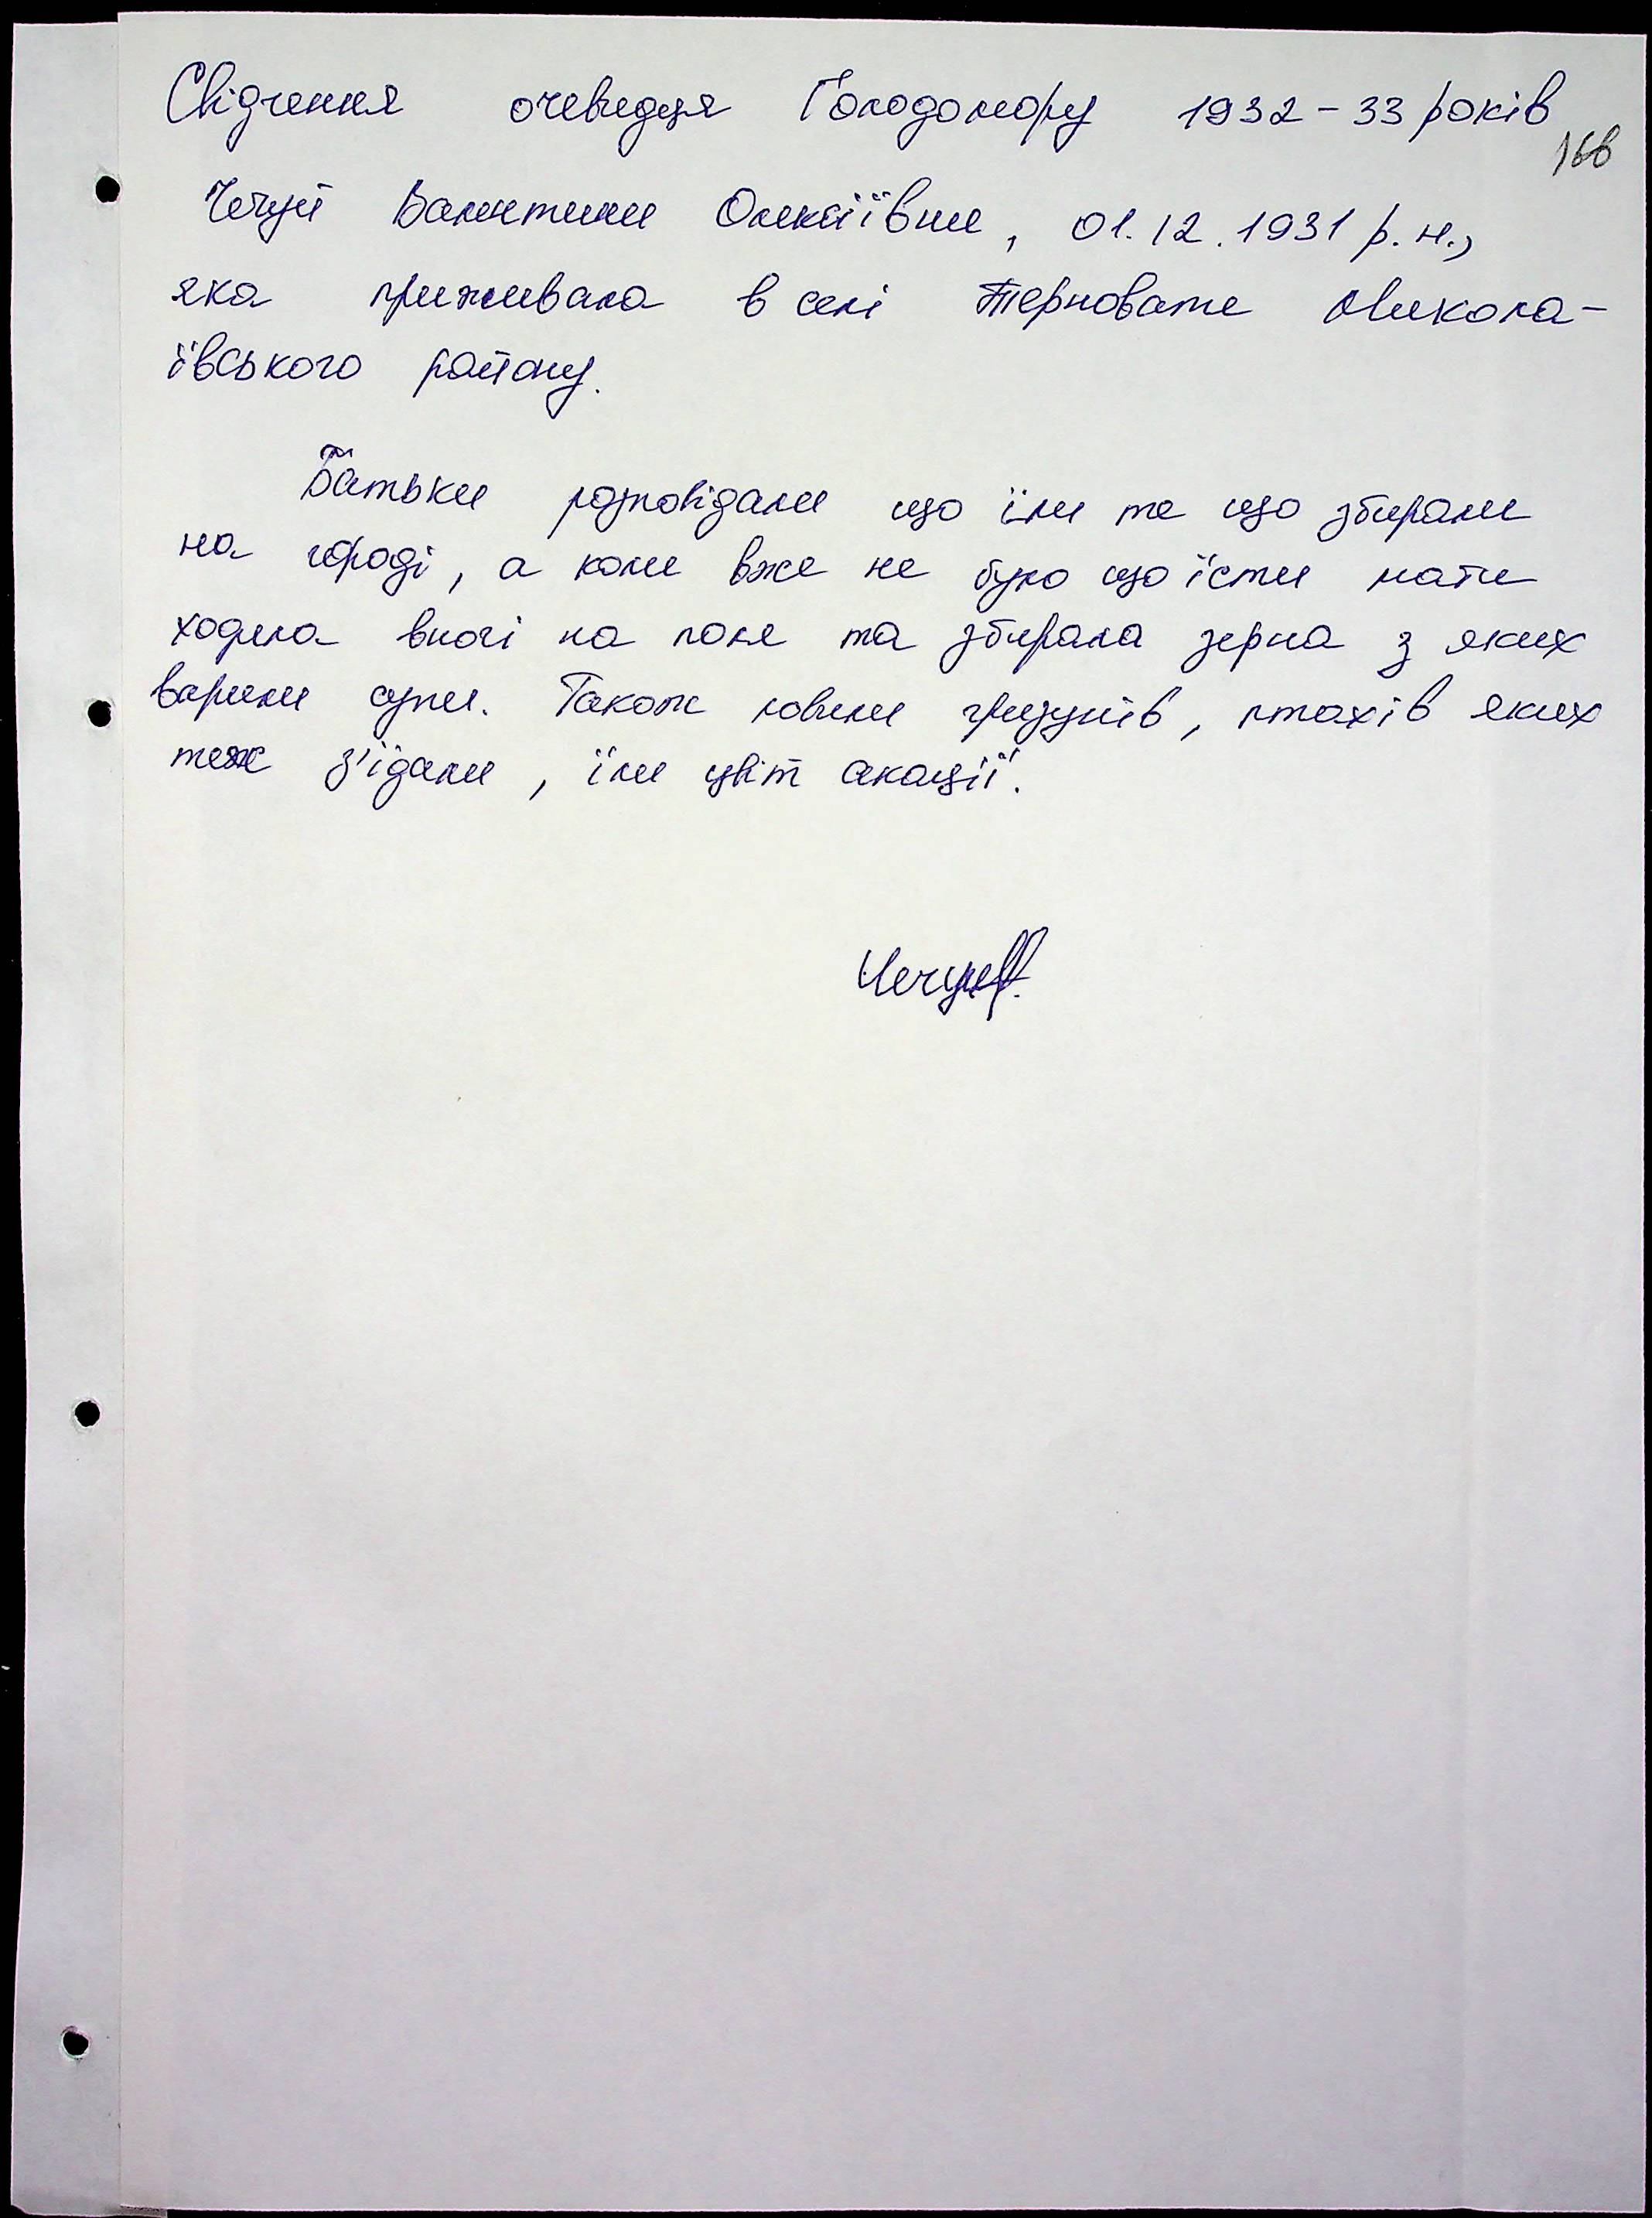 Свідчення очевидця Голодомору 1932-33 років
166
Чечуй Валентини Олексіївни, 01.12.1931 р.н.,
яка проживала в селі Терновате Микола-
ївського району.
Батьки розповідали що їли те що збирали
на городі, а коли вже не було що їсти мати
ходила вночі на поле та збирала зерна з яких
варили супи. Також ловили гризунів, птахів яких
теж з'їдали, їли цвіт акації.